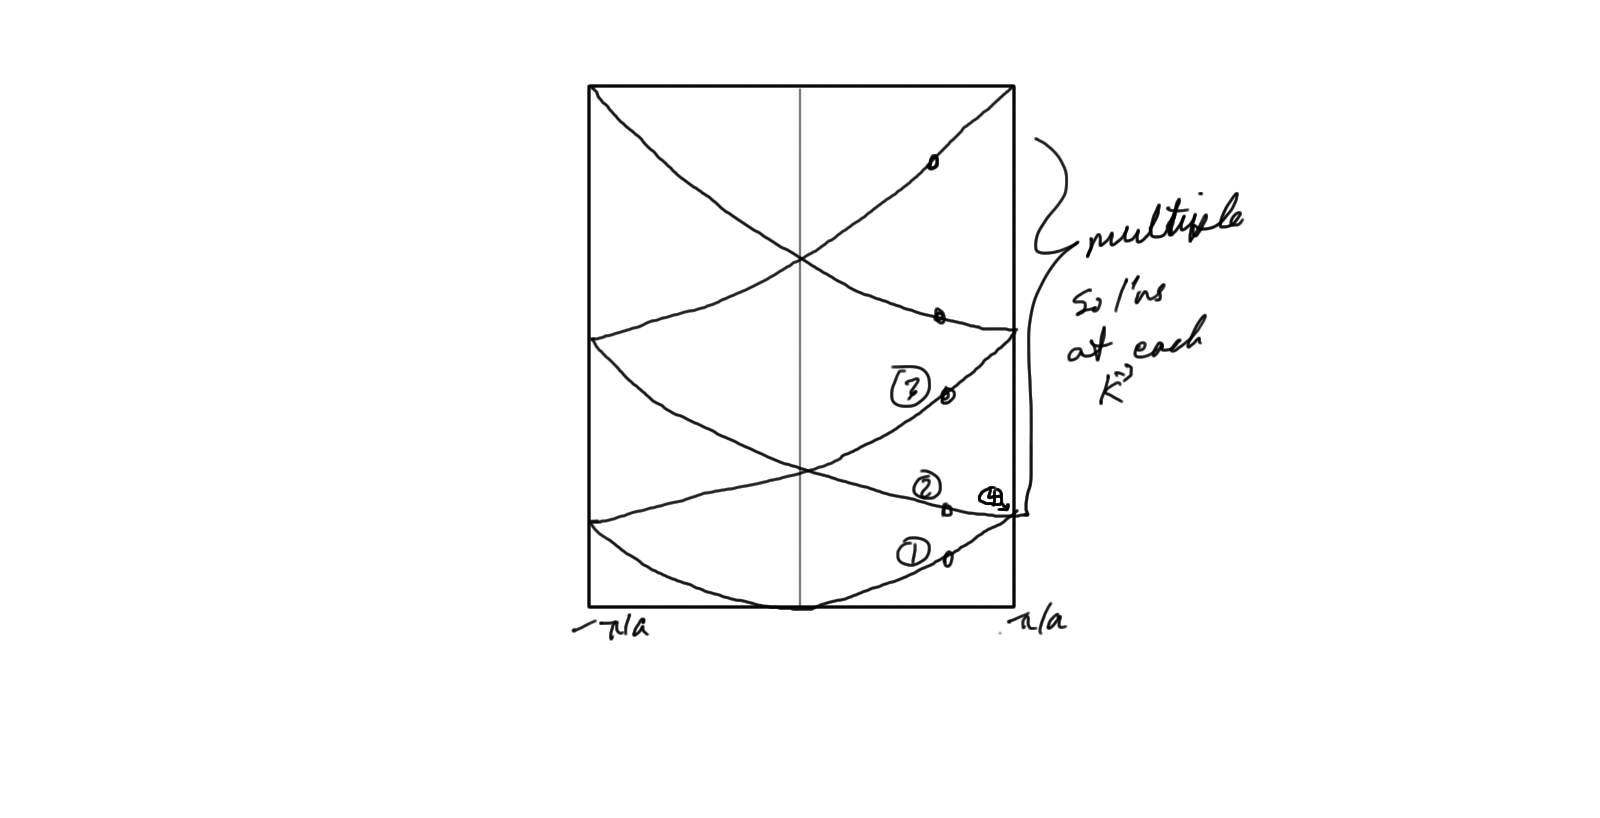 multiple
sol'ns
at each
k⃗
③
②
④
①
-π/a
π/a